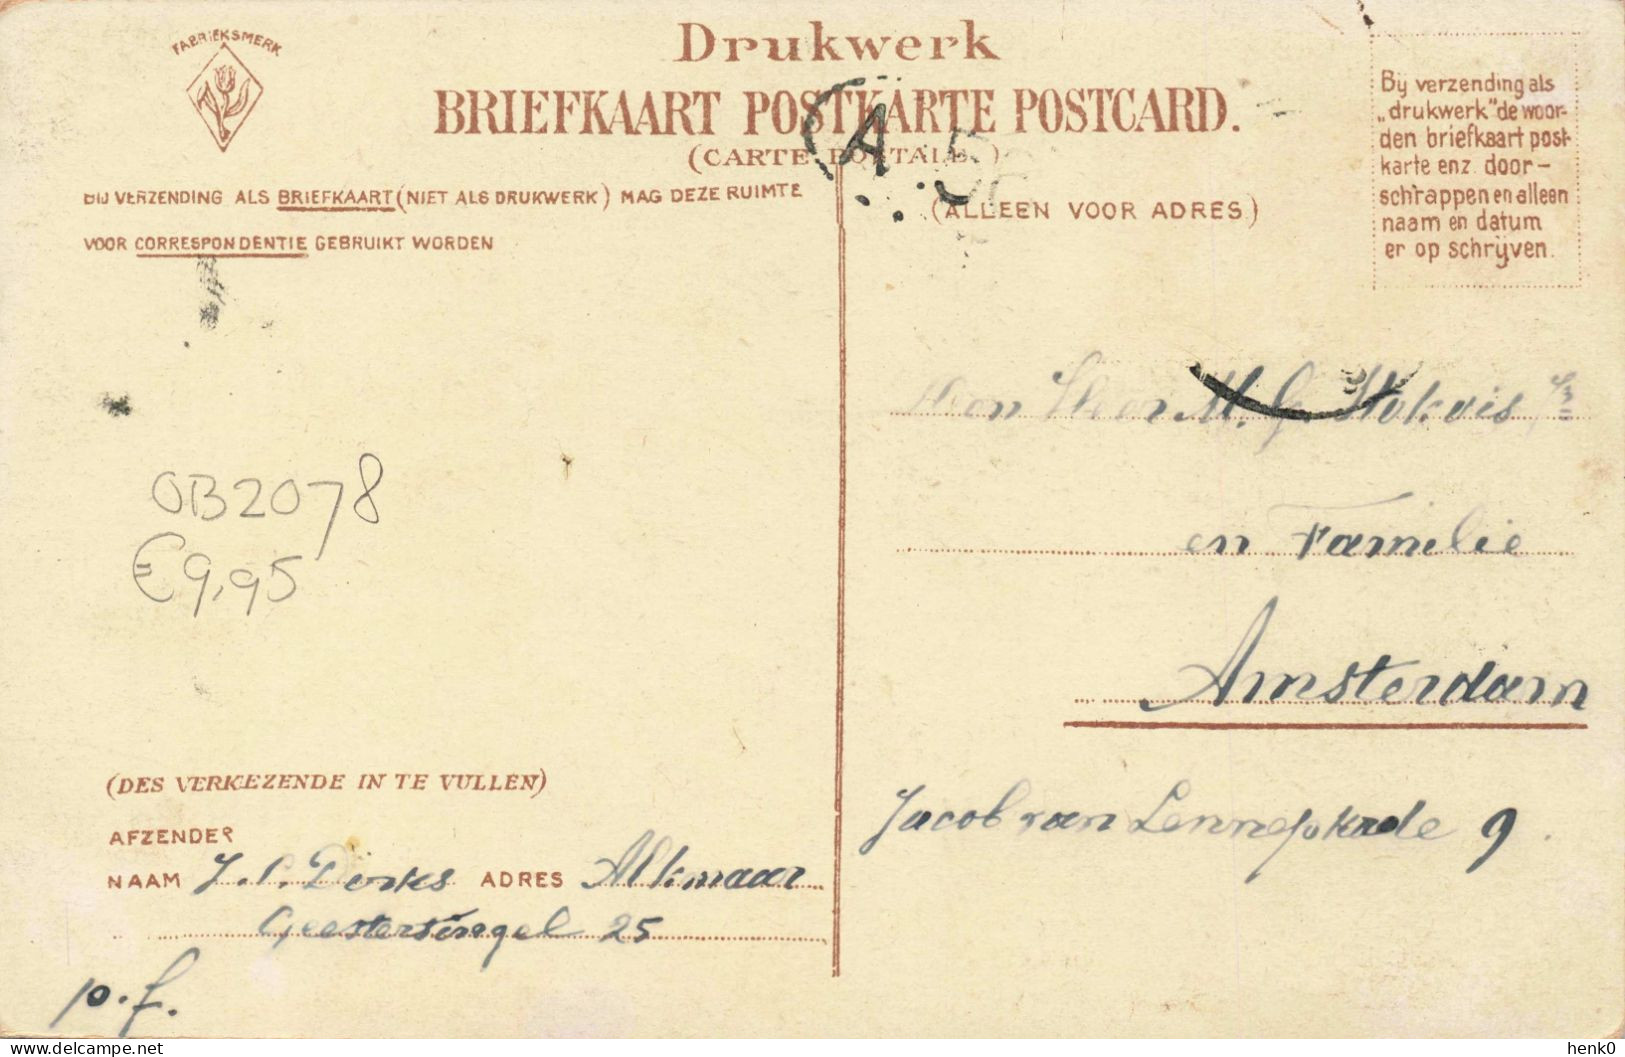 FABRIEKSMERK
Drukwerk
BRIEFKAART POSTKARTE POSTCARD.
(CARTE POSTALE)
A
BIJ VERZENDING ALS BRIEFKAART (NIET ALS DRUKWERK) MAG DEZE RUIMTE
VOOR CORRESPONDENTIE GEBRUIKT WORDEN
(ALLEEN VOOR ADRES)
Bij verzending als
„drukwerk" de woor-
den briefkaart post-
karte enz. door-
schrappen en alleen
naam en datum
er op schrijven.
Heer M. G. Stokvis Jr
en Familie
Amsterdam
Jacob van Lennepkade 9.
OB2078
€9,95
(DES VERKIEZENDE IN TE VULLEN)
AFZENDER
NAAM J. C. Dirkes ADRES Alkmaar
Geestersingel 25
p.f.
delcampe.net
henk0